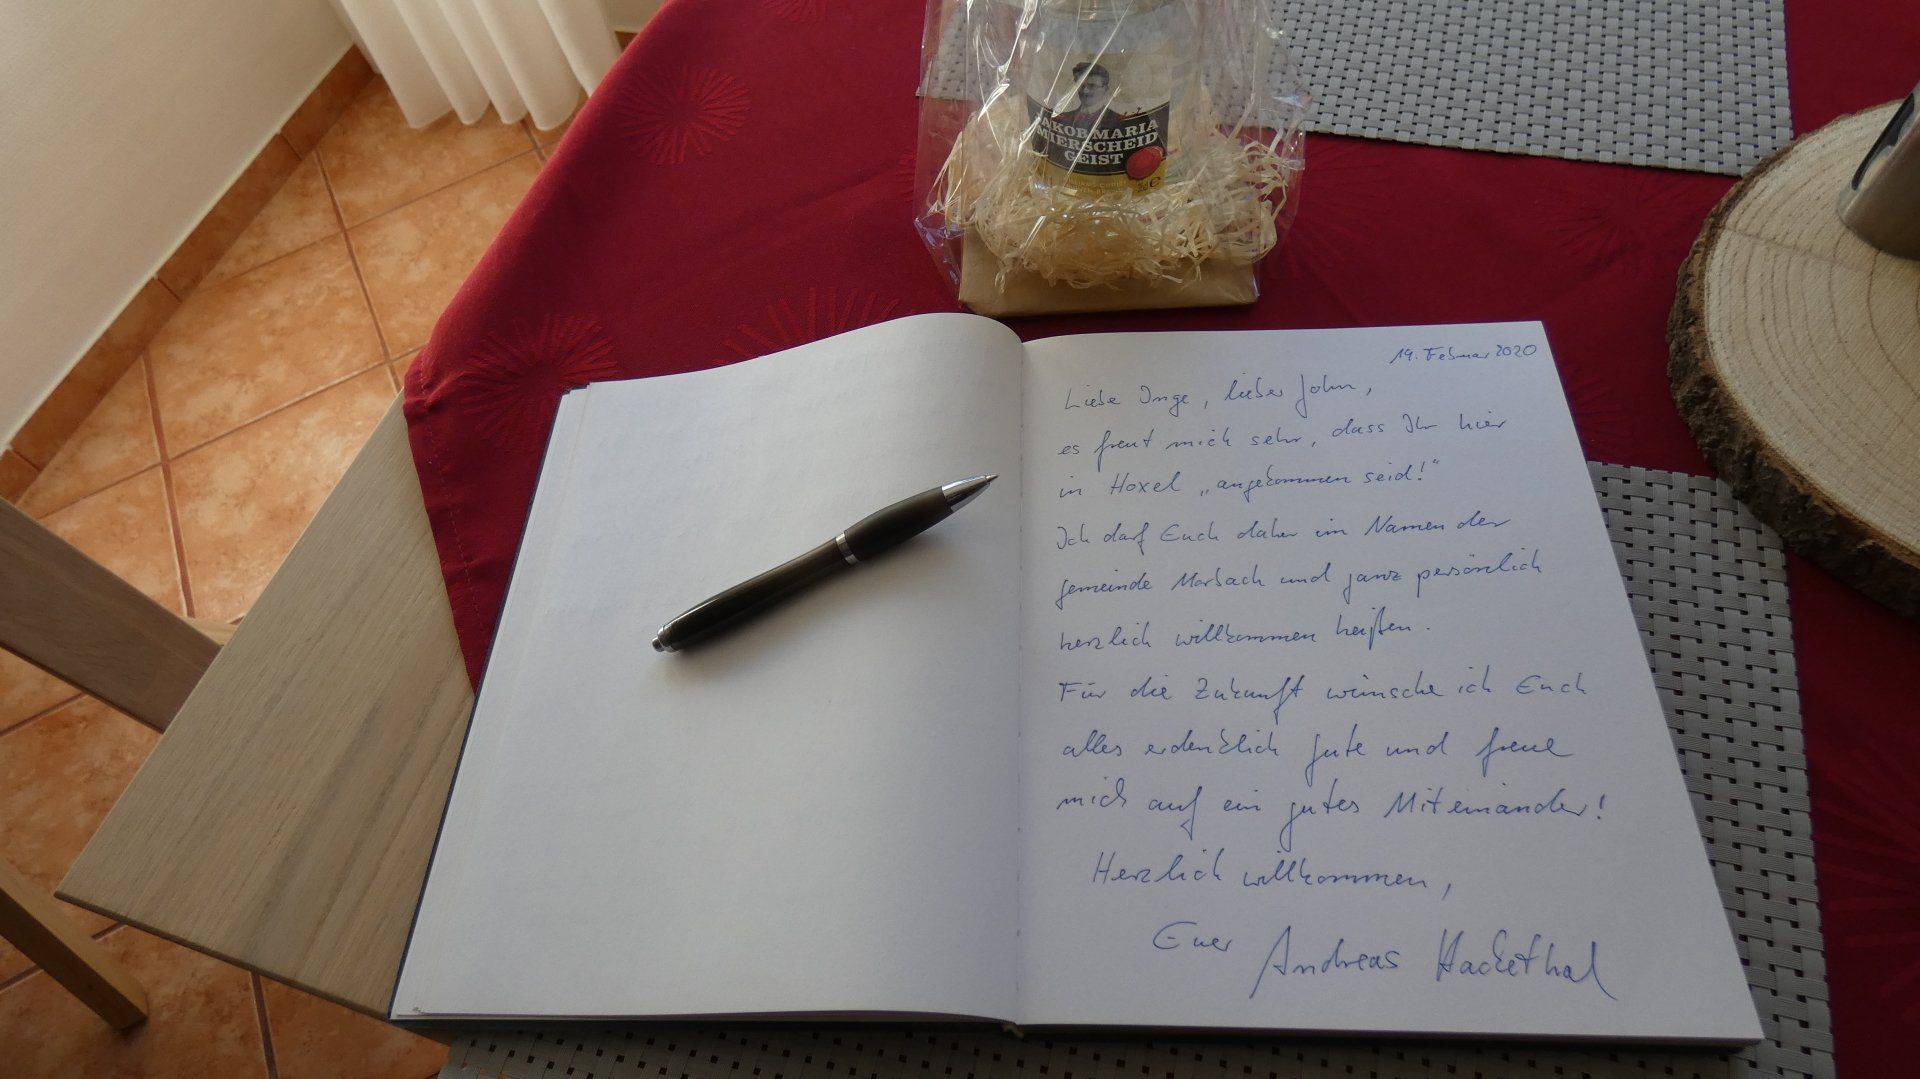 JAKOB MARIA
MIERSCHEID
GEIST
19. Februar 2020
Liebe Inge, lieber John,
es freut mich sehr, dass Ihr hier
in Hoxel „angekommen seid!"
Ich darf Euch daher im Namen der
Gemeinde Morbach und ganz persönlich
herzlich willkommen heißen.
Für die Zukunft wünsche ich Euch
alles erdenklich Gute und freue
mich auf ein gutes Miteinander!
Herzlich willkommen,
Euer Andreas Hackethal